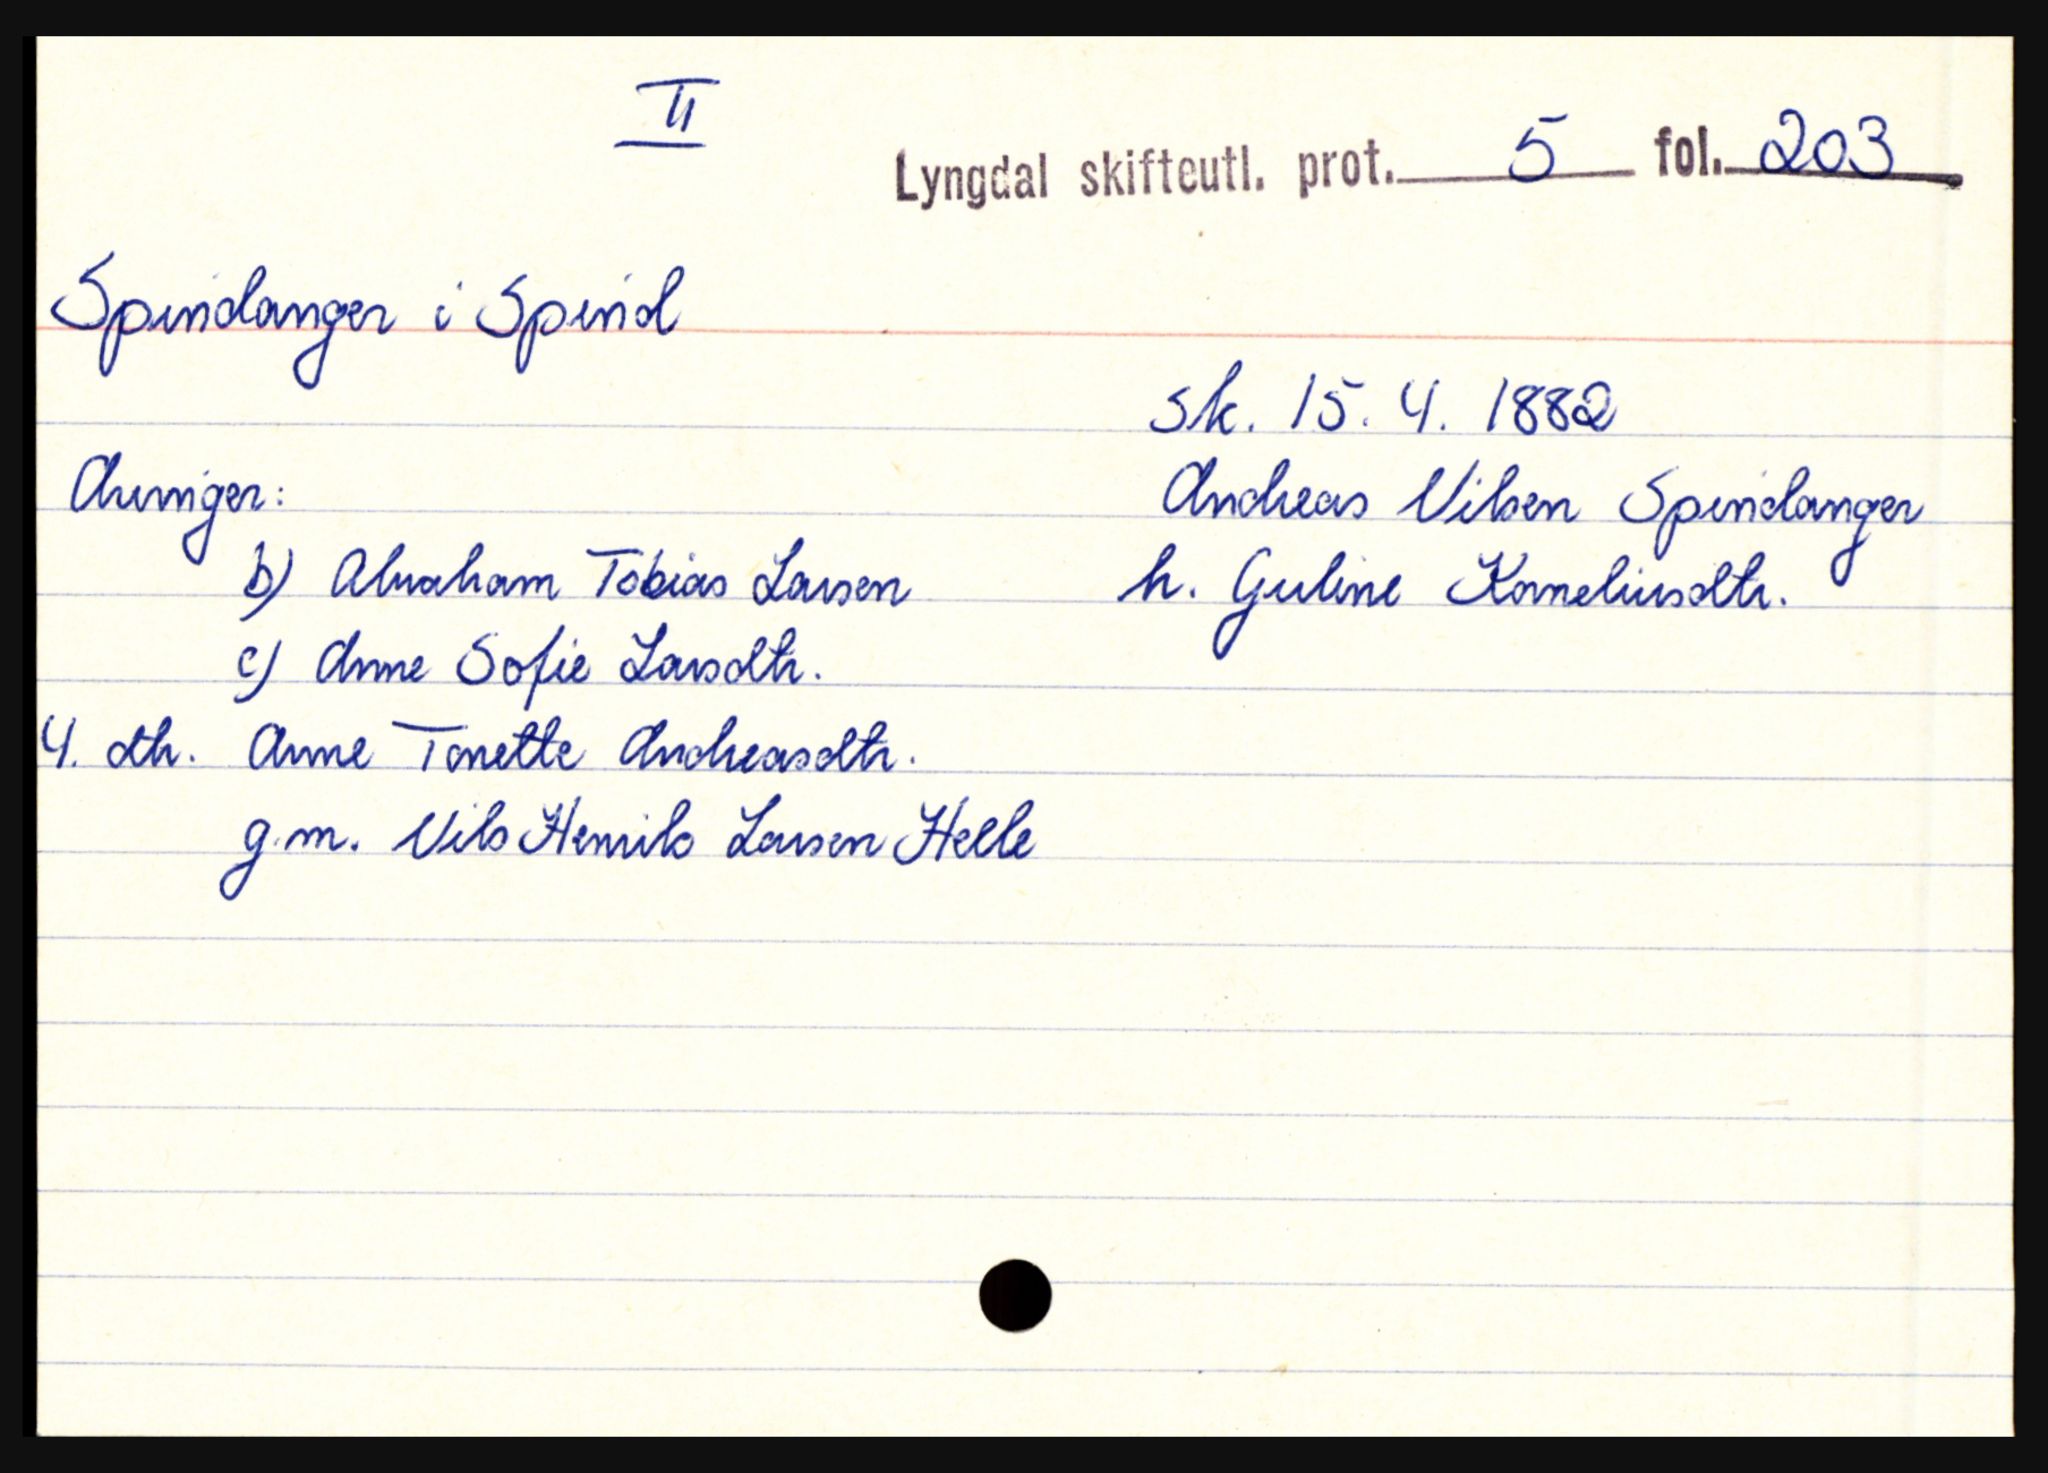 II
Lyngdal skifteutl. prot. 5 fol. 203
Spindanger i Spind
sk. 15. 4. 1882
Arvinger:
Andreas Nilsen Spindanger
b) Abraham Tobias Larsen
h. Guline Korneliusdtr.
c) Anne Sofie Larsdtr.
4. dtr. Anne Tonette Andreasdtr.
g.m. Nils Henrik Larsen Helle